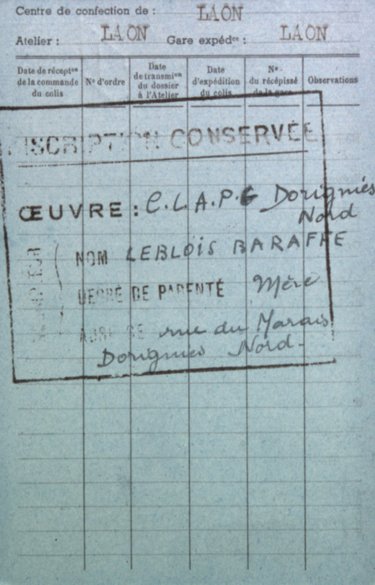 Centre de confection de : LAON
Atelier : LAON Gare expédᶜᵉ : LAON
Date de réceptᵒⁿ de la commande du colis
Nº d'ordre
Date de transmiᵒⁿ du dossier à l'Atelier
Date d'expédition du colis
Nº. du récépissé de la gare
Observations
INSCRIPTION CONSERVÉE
ŒUVRE : C.L.A.P.G Dorignies
Nord
NOM LEBLOIS BARAFFE
DEGRÉ DE PARENTÉ Mère
ADRESSE rue du Marais
Dorignies Nord-